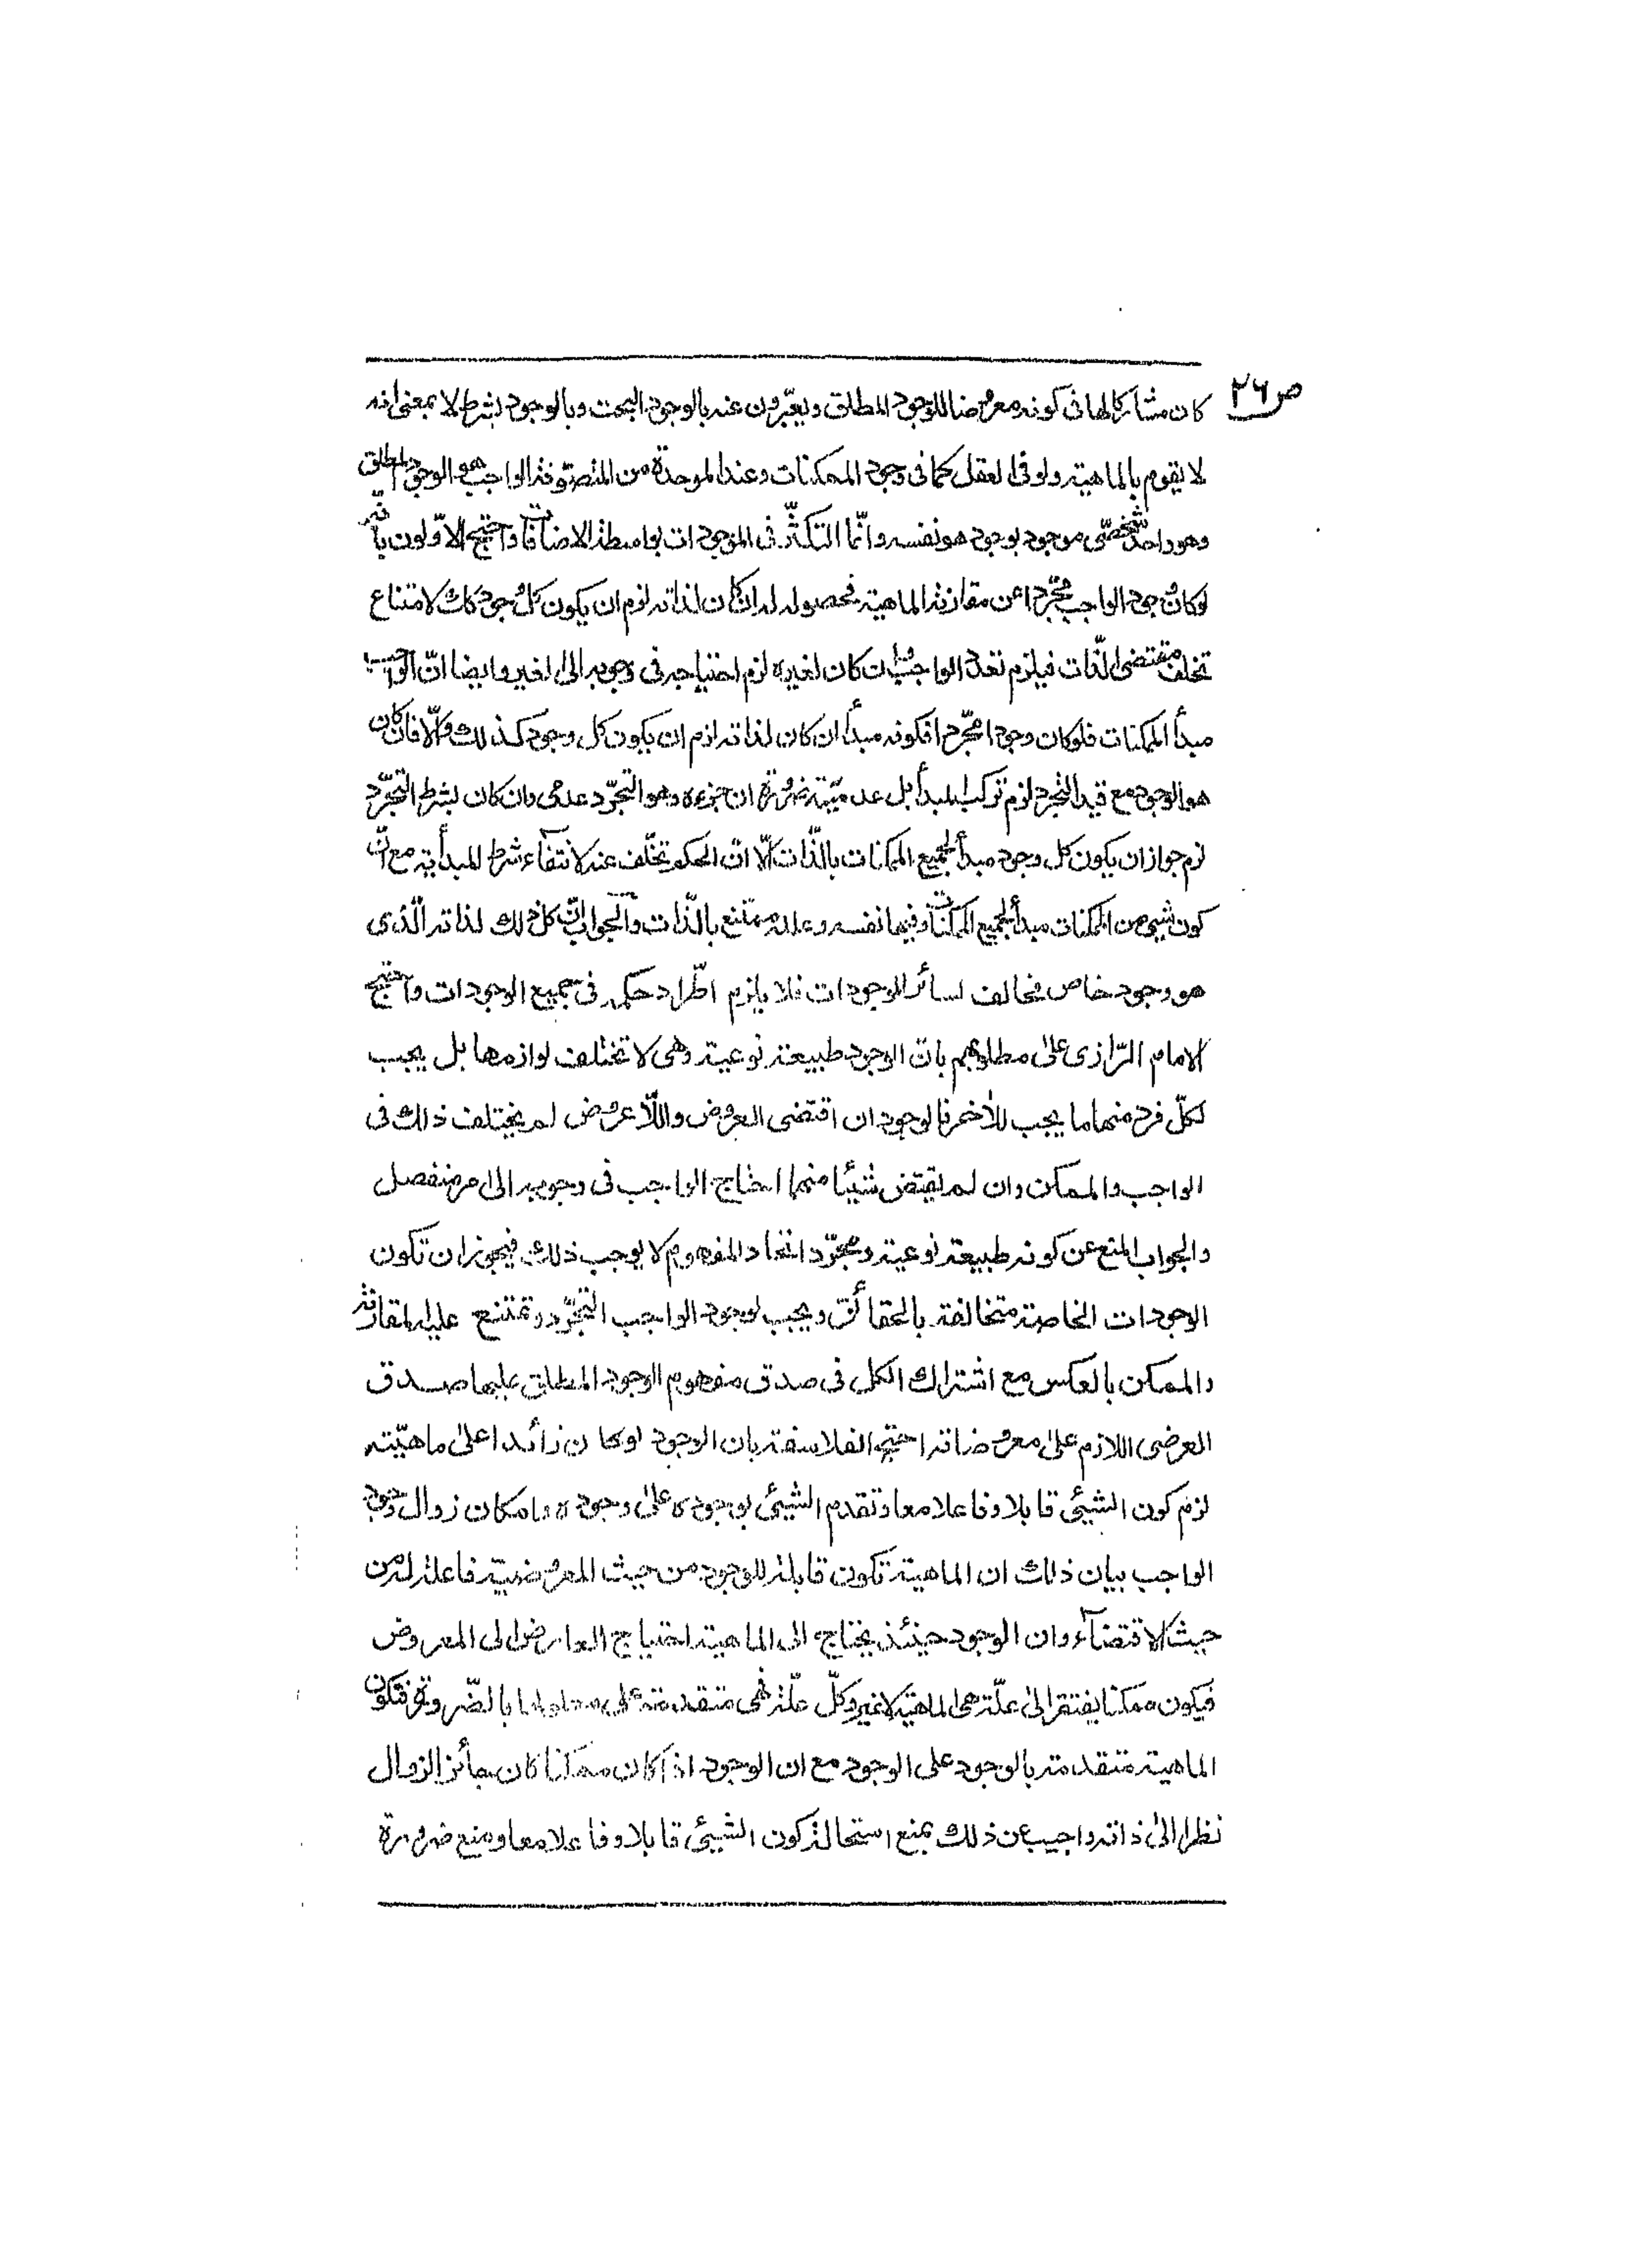 ص ٢٦
كان مشاركا لها فى كونه معروضا للوجود المطلق ويعبّرون عنه بالوجود البحت وبالوجود بشرط لا بمعنى انه
لا يقوم بالماهية ولو فى العقل كما فى وجود الممكنات وعند الموحدة من المتصوّفة الواجب هو الوجود المطلق
وهو واحد شخصّى موجود بوجود هو نفسه وانّما التكثّر فى الموجودات بواسطة الاضافات واحتج الاوّلون بانّه
لو كان وجود الواجب مجّردا عن مقارنة الماهية فحصوله له ان كان لذاته لزم ان يكون كل وجود كذلك لامتناع
تخلف مقتضى الذّات فيلزم تعدد الواجب وان كان لغيره لزم احتياجه فى وجوبه الى الغير وايضا انّ الواجب
مبدأ الممكنات فلو كان وجودا مجّردا فكونه مبدأ ان كان لذاته لزم ان يكون كل وجود كذلك والّا فان كان
هو الوجود مع قيد التجرد لزم تركب المبدأ بل عدميّته ضرورة ان جزءه وهو التجرّد عدمى وان كان بشرط التجرّد
لزم جواز ان يكون كل وجود مبدأ لجميع الممكنات بالذّات الّا انّ الحكم تخلّف عنه لانتفآء شرط المبدأية مع انّ
كون شيئ من الممكنات مبدأ لجميع الممكنات وفيها نفسه وعلله ممتنع بالذّات والجواب انّ كل ذلك لذاته الّذى
هو وجود خاص مخالف لسائر الوجودات فلا يلزم اطّراد حكمه فى جميع الوجودات واحتج
الامام الرّازى على مطلوبهم بانّ الوجود طبيعة نوعية وهى لا تختلف لوازمها بل يجب
لكلّ فرد منها ما يجب للاخر فالوجود ان اقتضى العروض واللّا عروض لم يختلف ذلك فى
الواجب والممكن وان لم يقتض شيئا منهما احتاج الواجب فى وجوبه الى امر منفصل
والجواب المنع عن كونه طبيعة نوعية ومجرّد اتحاد المفهوم لا يوجب ذلك فيجوز ان تكون
الوجودات الخاصة متخالفة بالحقائق ويجب لوجود الواجب التجرّد وتمتنع عليه المقارنة
والممكن بالعكس مع اشتراك الكل فى صدق مفهوم الوجود المطلق عليها صدق
العرضى اللازم على معروضاته احتج الفلاسفة بان الوجود لو كان زائدا على ماهيّته
لزم كون الشيئ قابلا وفاعلا معا وتقدم الشيئ بوجوده على وجوده وامكان زوال وجود
الواجب بيان ذلك ان الماهية تكون قابلة للوجود من حيث المعروضية فاعلة له من
حيث الاقتضآء وان الوجود حينئذ يحتاج الى الماهية احتياج العارض الى المعروض
فيكون ممكنا يفتقر الى علّة هى الماهية لا غير وكلّ علّة فهى متقدمة على معلولها بالضّرورة فتكون
الماهية متقدمة بالوجود على الوجود مع ان الوجود اذا كان ممكنا كان جائز الزوال
نظرا الى ذاته واجيب عن ذلك بمنع استحالة كون الشيئ قابلا وفاعلا معا ومنع ضرورة